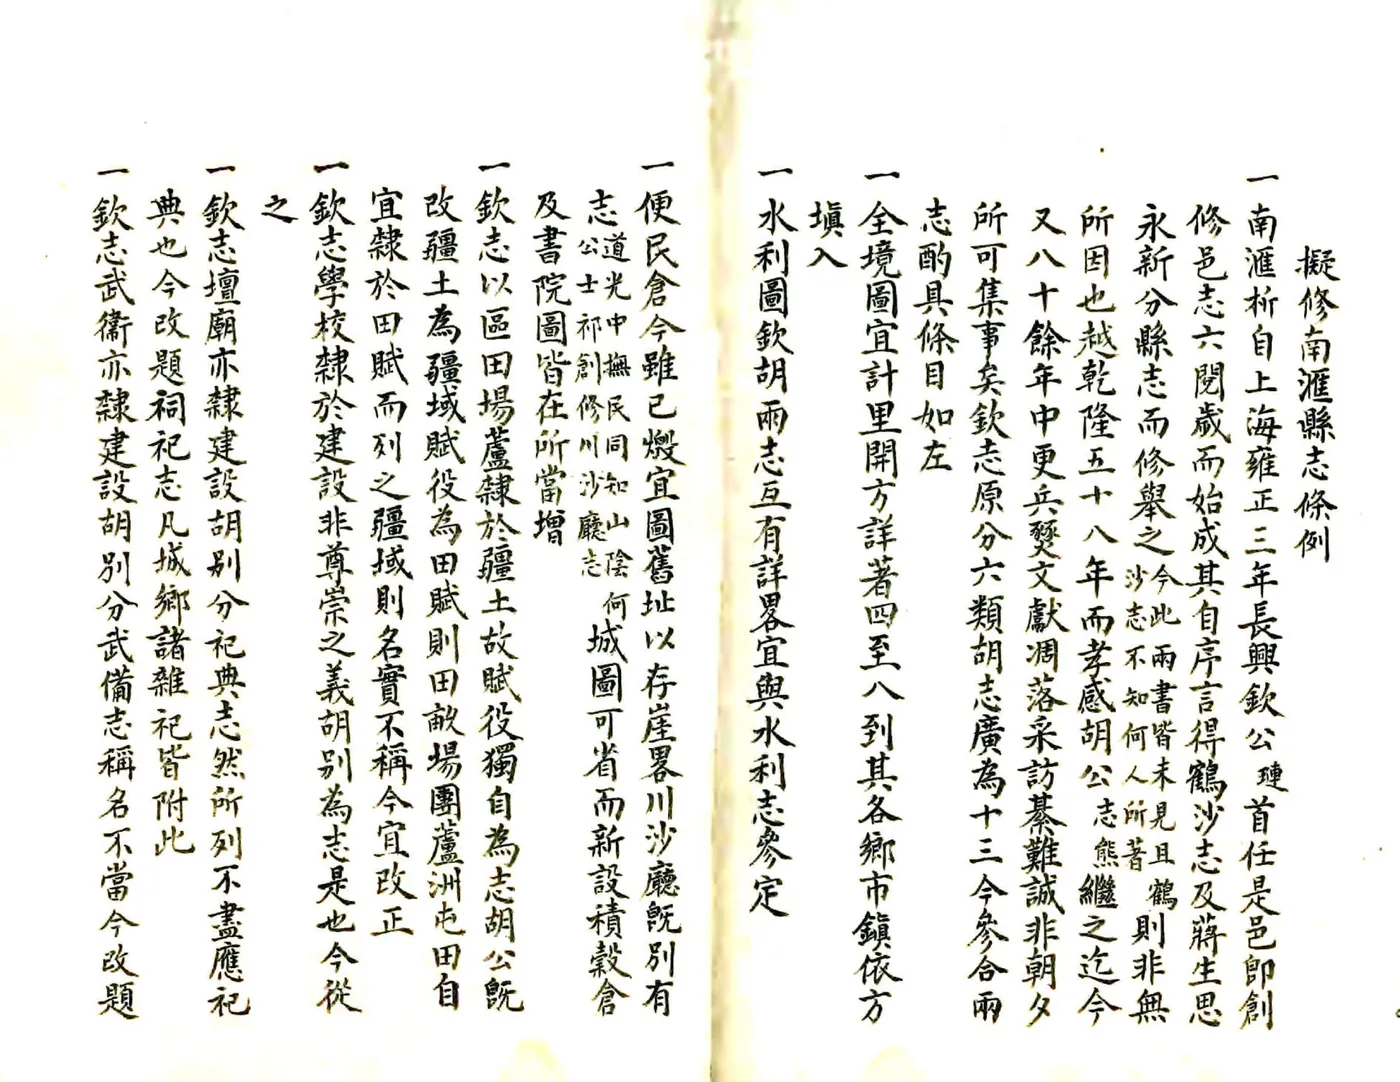 擬修南滙縣志條例
一南滙析自上海雍正三年長興欽公璉首任是邑卽創
修邑志六閱歲而始成其自序言得鶴沙志及蔣生思
永新分縣志而修舉之今此兩書皆未見且鶴沙志不知何人所著則非無
所因也越乾隆五十八年而孝感胡公志熊繼之迄今
又八十餘年中更兵燹文獻凋落采訪綦難誠非朝夕
所可集事矣欽志原分六類胡志廣為十三今參合兩
志酌具條目如左
一全境圖宜計里開方詳著四至八到其各鄉市鎭依方
塡入
一水利圖欽胡兩志互有詳畧宜與水利志參定
一便民倉今雖已燬宜圖舊址以存崖畧川沙廳旣別有
志道光中撫民同知山陰何公士祁創修川沙廳志城圖可省而新設積穀倉
及書院圖皆在所當增
一欽志以區田場蘆隸於疆土故賦役獨自為志胡公旣
改疆土為疆域賦役為田賦則田畝場團蘆洲屯田自
宜隸於田賦而列之疆域則名實不稱今宜改正
一欽志學校隸於建設非尊崇之義胡別為志是也今從
之
一欽志壇廟亦隸建設胡別分祀典志然所列不盡應祀
典也今改題祠祀志凡城鄉諸雜祀皆附此
一欽志武衞亦隸建設胡別分武備志稱名不當今改題